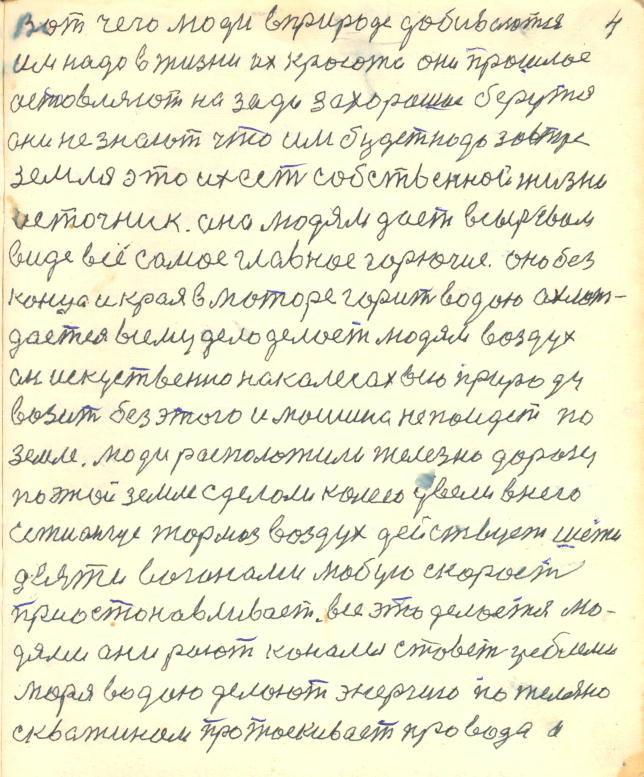 вот чего люди в природе добиваются 4
им надо в жизни их красота они прошлое
оставляют на зади захорошие берутся
они незнают что им будет надо завтре
земля это их есть собственной жизни
источник. она людям дает в сырьвом
виде всё самое главное горючие. оно без
конца и края в моторе горит водою ахлаж-
дается всему дело делает людям воздух
он искуственно накалесах всю природу
возит без этого и мошина непоидет по
земле. люди расположили железно дорогу
по этой земле сделали колесо увели в него
тормоз воздух действует
десяти вогонами любую скорость
приостонавливает. все это делается лю-
дями они роют каналы ставят греблеми
моря водою делают энергию по желяно
скважинам протаскивает провода и